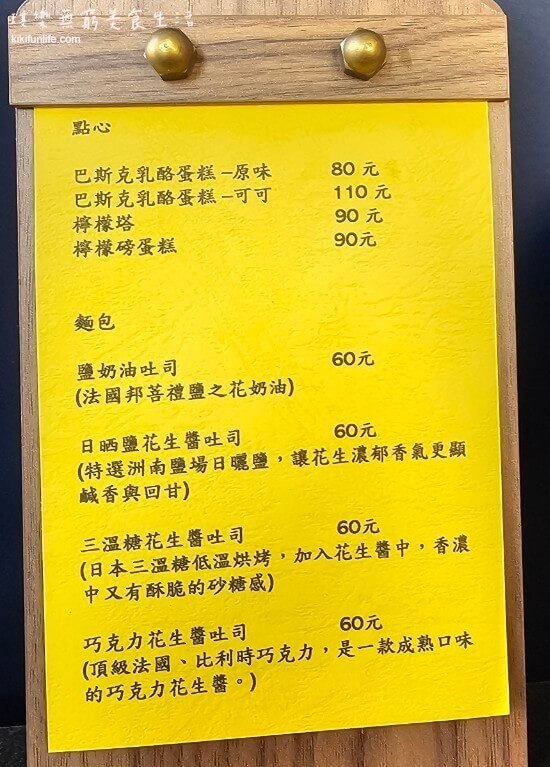 璞樂無窮美食生活
kikifunlife.com
點心
巴斯克乳酪蛋糕-原味 80 元
巴斯克乳酪蛋糕-可可 110 元
檸檬塔 90 元
檸檬磅蛋糕 90元
麵包
鹽奶油吐司 60元
(法國邦菩禮鹽之花奶油)
日晒鹽花生醬吐司 60元
(特選洲南鹽場日曬鹽，讓花生濃郁香氣更顯
鹹香與回甘)
三溫糖花生醬吐司 60元
(日本三溫糖低溫烘烤，加入花生醬中，香濃
中又有酥脆的砂糖感)
巧克力花生醬吐司 60元
(頂級法國、比利時巧克力，是一款成熟口味
的巧克力花生醬。)